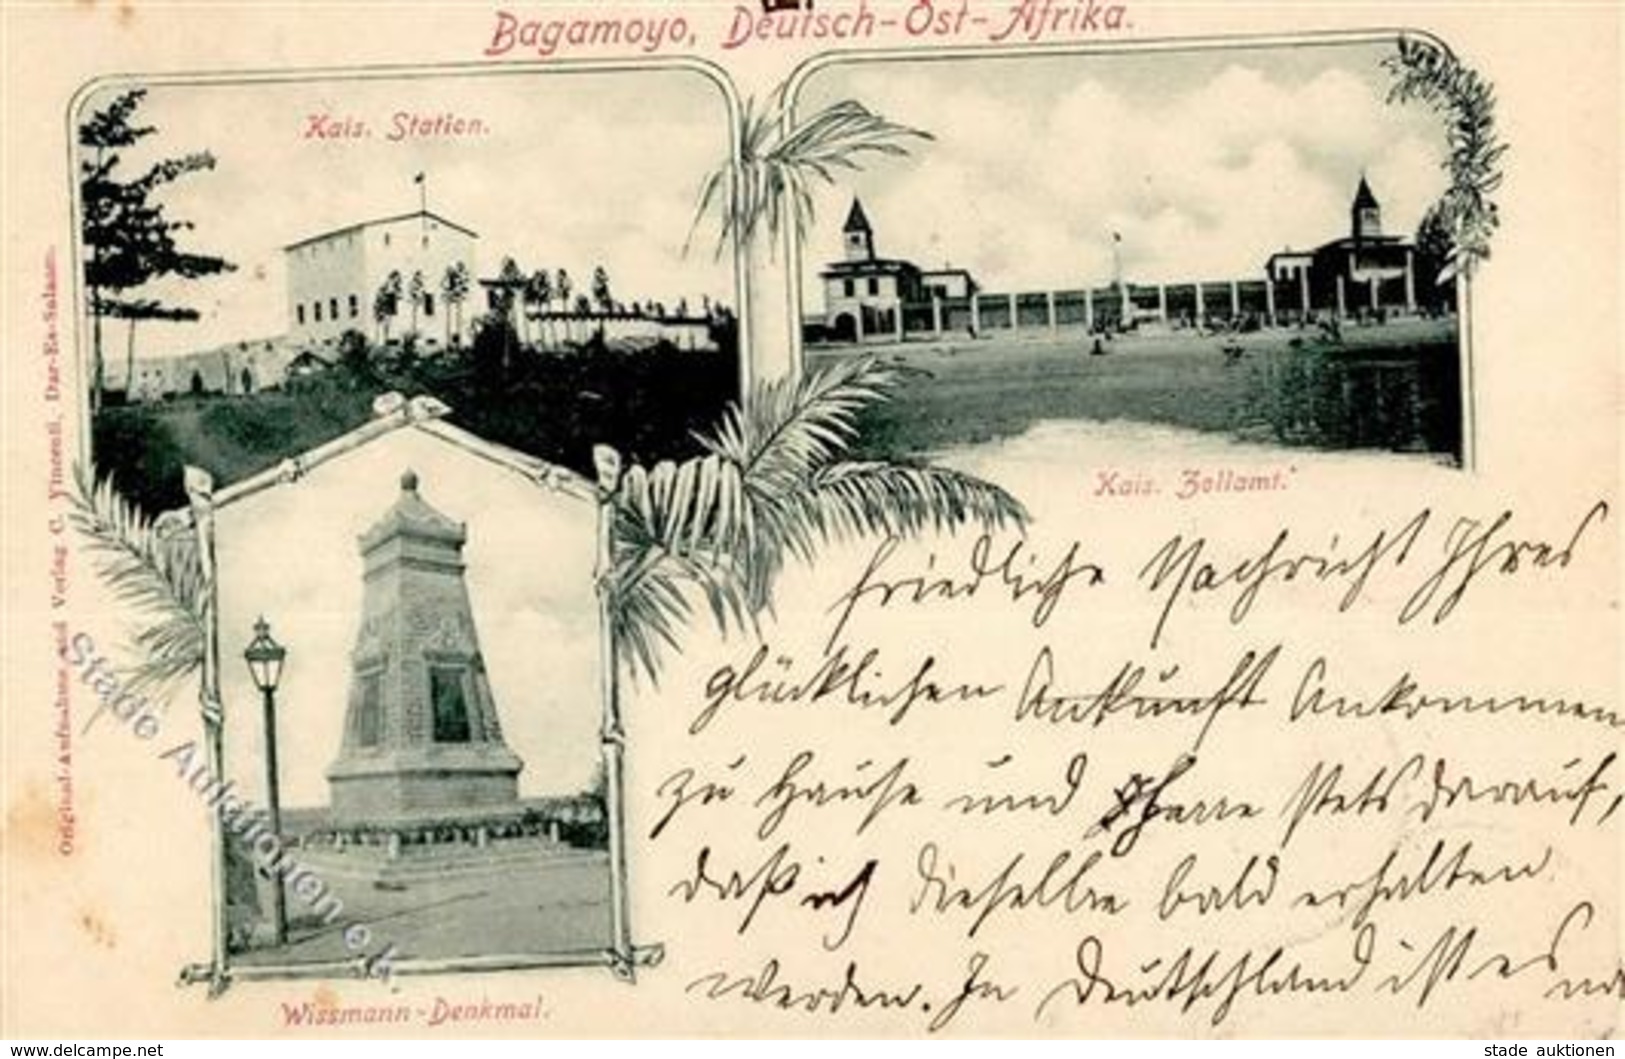 Bagamoyo, Deutsch-Ost-Afrika.
Kais. Station.
Kais. Zollamt.
Wissmann-Denkmal.
Original-Aufnahme und Verlag C. Vincenti, Dar-Es-Salaam.
friedliche Nachricht Ihres
glücklichen Ankunft Ankommen
zu Hause und harre stets darauf,
daß ich dieselbe bald erhalten
werden. In Deutschland ist es
Stade Auktionen e.k.
www.delcampe.net
stade auktionen